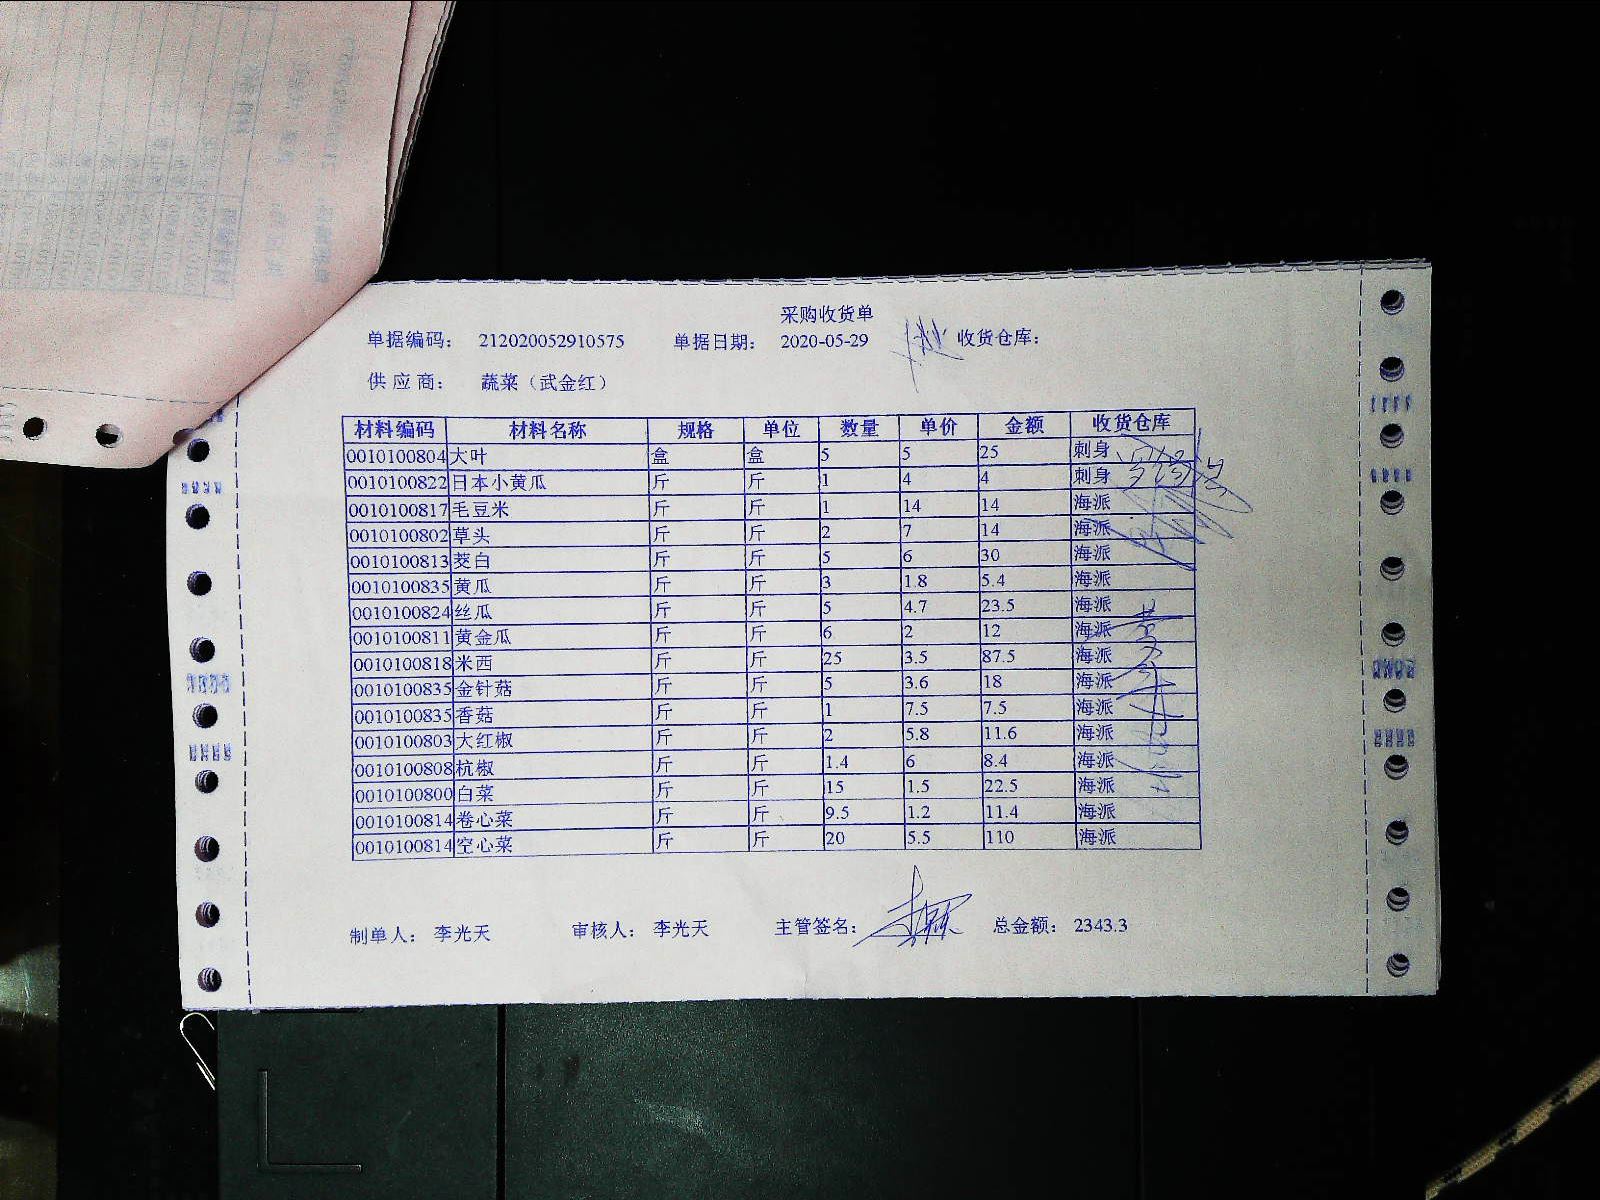 采购收货单
单据编码： 212020052910575 单据日期： 2020-05-29 收货仓库：
供 应 商： 蔬菜（武金红）
材料编码 材料名称 规格 单位 数量 单价 金额 收货仓库
0010100804 大叶 盒 盒 5 5 25 刺身
0010100822 日本小黄瓜 斤 斤 1 4 4 刺身
0010100817 毛豆米 斤 斤 1 14 14 海派
0010100802 草头 斤 斤 2 7 14 海派
0010100813 茭白 斤 斤 5 6 30 海派
0010100835 黄瓜 斤 斤 3 1.8 5.4 海派
0010100824 丝瓜 斤 斤 5 4.7 23.5 海派
0010100811 黄金瓜 斤 斤 6 2 12 海派
0010100818 米西 斤 斤 25 3.5 87.5 海派
0010100835 金针菇 斤 斤 5 3.6 18 海派
0010100835 香菇 斤 斤 1 7.5 7.5 海派
0010100803 大红椒 斤 斤 2 5.8 11.6 海派
0010100808 杭椒 斤 斤 1.4 6 8.4 海派
0010100800 白菜 斤 斤 15 1.5 22.5 海派
0010100814 卷心菜 斤 斤 9.5 1.2 11.4 海派
0010100814 空心菜 斤 斤 20 5.5 110 海派
制单人： 李光天 审核人： 李光天 主管签名： 总金额： 2343.3